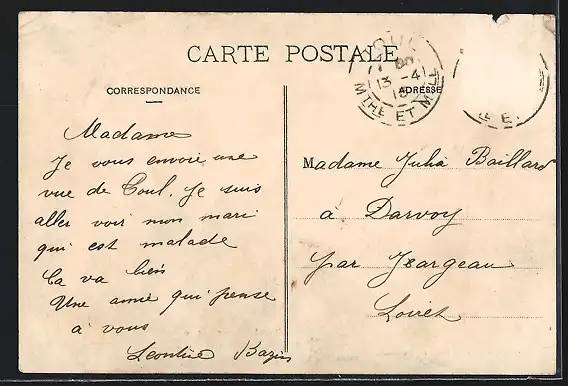 CARTE POSTALE
TOUL
13 -4
MTHE ET MLLE
CORRESPONDANCE
ADRESSE
Madame
Je vous envoie une
vue de Toul. Je suis
aller voir mon mari
qui est malade
Ça va bien
Une amie qui pense
à vous
Leontine Bazin
Madame Julia Baillard
à Darvoy
par Jeargeau
Loiret